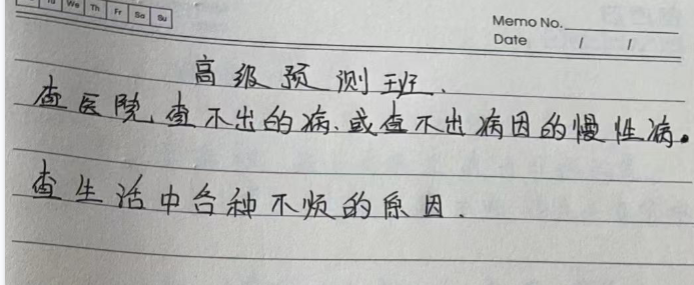 We Th Fr Sa Su
Memo No.
Date / /
高级预测班.
查医院,查不出的病、或查不出病因的慢性病。
查生活中各种不烦的原因.